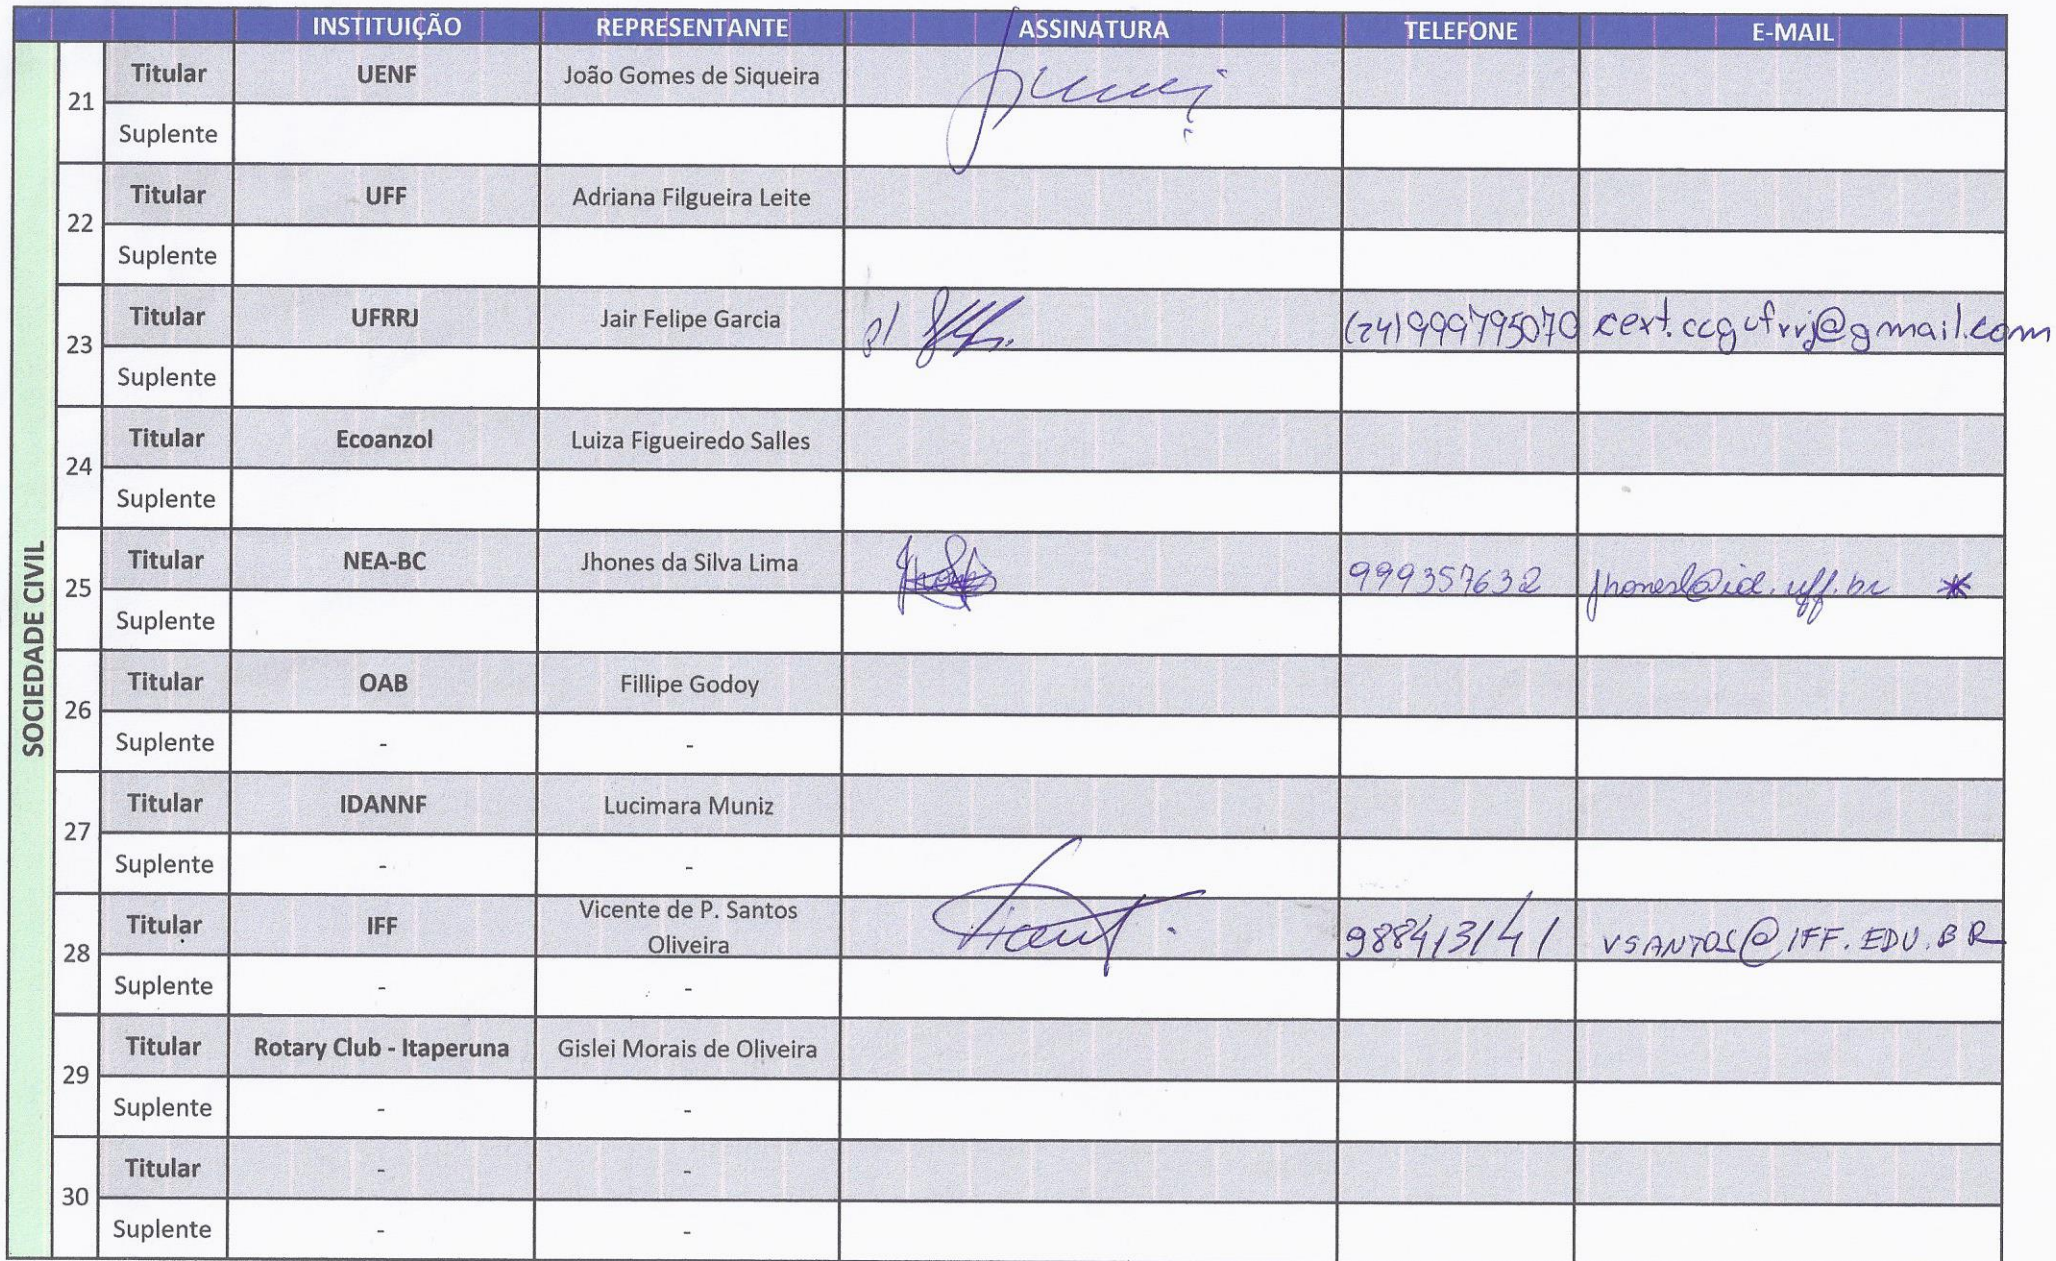 INSTITUIÇÃO REPRESENTANTE ASSINATURA TELEFONE E-MAIL
SOCIEDADE CIVIL
21 Titular UENF João Gomes de Siqueira
Suplente
22 Titular UFF Adriana Filgueira Leite
Suplente
23 Titular UFRRJ Jair Felipe Garcia p/ (24)999795070 cext.ccgufrrj@gmail.com
Suplente
24 Titular Ecoanzol Luiza Figueiredo Salles
Suplente
25 Titular NEA-BC Jhones da Silva Lima 999357632 jhonesl@id.uff.br *
Suplente
26 Titular OAB Fillipe Godoy
Suplente - -
27 Titular IDANNF Lucimara Muniz
Suplente - -
28 Titular IFF Vicente de P. Santos
Oliveira 988413141 VSANTOS@IFF.EDU.BR
Suplente - -
29 Titular Rotary Club - Itaperuna Gislei Morais de Oliveira
Suplente - -
30 Titular - -
Suplente - -